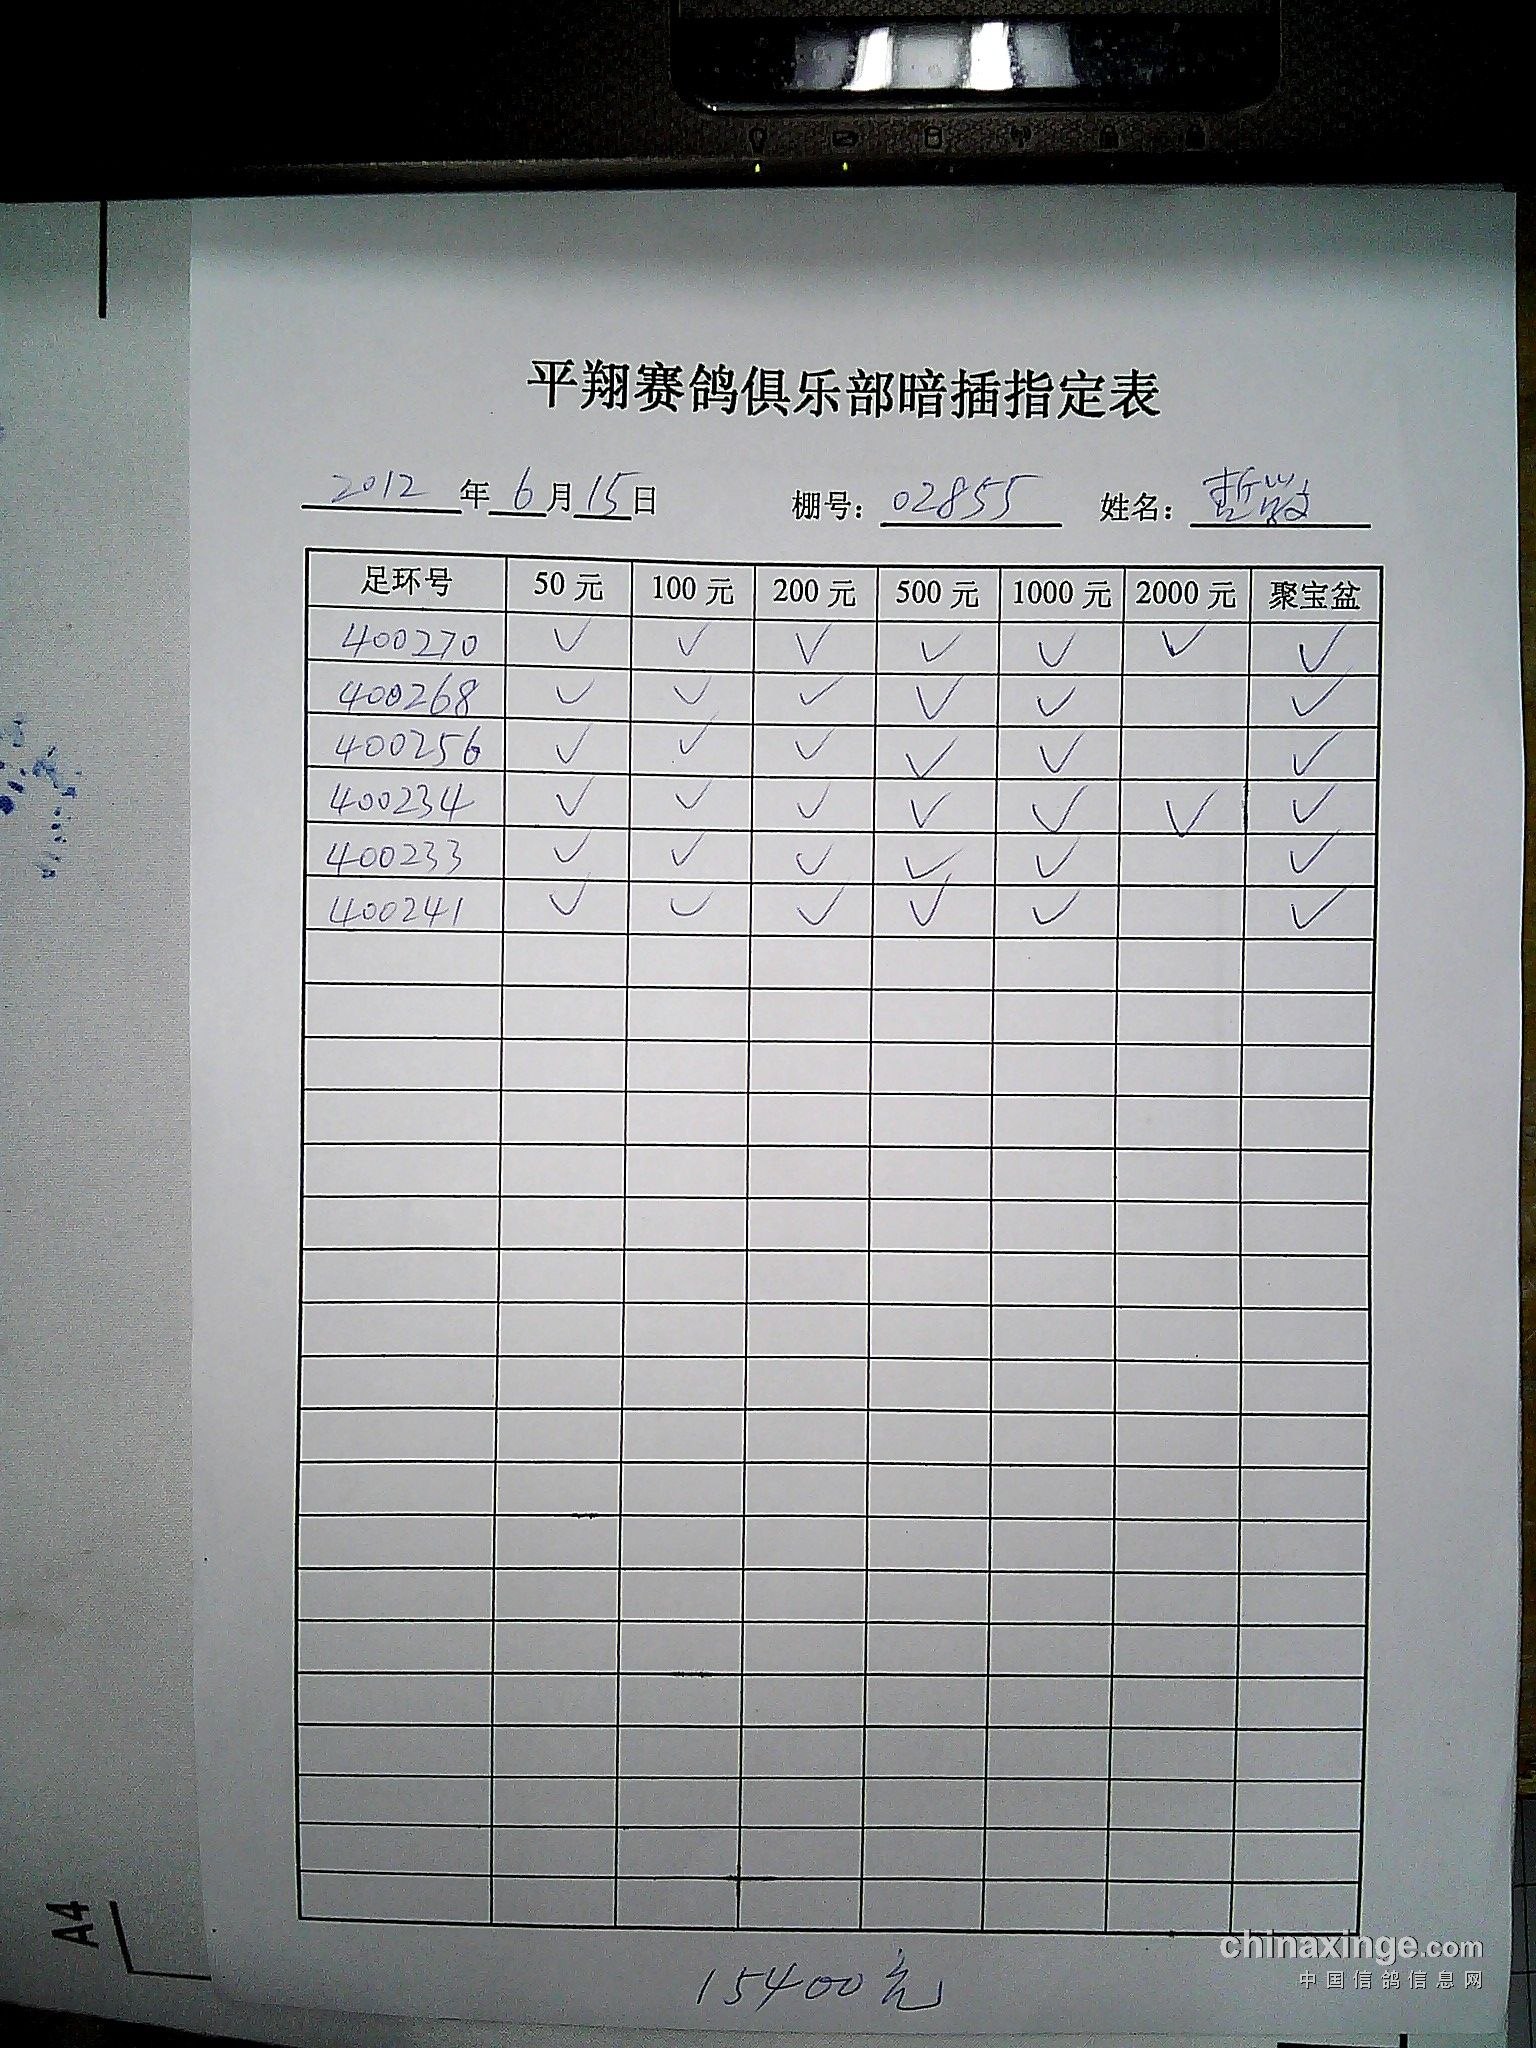 平翔赛鸽俱乐部暗插指定表
2012年6月15日 棚号：02855 姓名：
足环号 50元 100元 200元 500元 1000元 2000元 聚宝盆
400270 ✓ ✓ ✓ ✓ ✓ ✓ ✓
400268 ✓ ✓ ✓ ✓ ✓ ✓
400256 ✓ ✓ ✓ ✓ ✓ ✓
400234 ✓ ✓ ✓ ✓ ✓ ✓ ✓
400233 ✓ ✓ ✓ ✓ ✓ ✓
400241 ✓ ✓ ✓ ✓ ✓ ✓
15400元
A4
chinaxinge.com
中国信鸽信息网